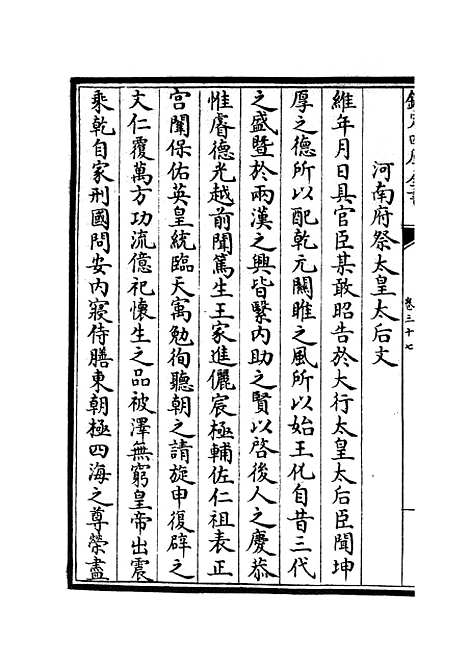 卷三十七
河南府祭太皇太后文
維年月日具官臣某敢昭告於大行太皇太后臣聞坤
厚之德所以配乾元關雎之風所以始王化自昔三代
之盛暨於兩漢之興皆繫內助之賢以啓後人之慶恭
惟睿德光越前聞篤生王家進儷宸極輔佐仁祖表正
宫闈保佑英皇統臨天寓勉徇聽朝之請旋申復辟之
文仁覆萬方功流億祀懷生之品被澤無窮皇帝出震
乘乾自家刑國問安內寢侍膳東朝極四海之尊榮盡